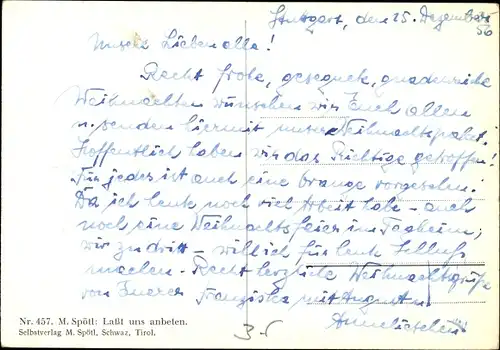 Stuttgart, den 25. Dezember
56
Unsere Lieben alle!
Recht frohe, gesegnete, gnadenreiche
Weihnachten wünschen wir Euch allen
u. senden hiermit unser Weihnachtspaket.
Hoffentlich haben wir das Richtige getroffen!
Für jedes ist auch eine Orange vorgesehen.
Da ich heute noch viel Arbeit habe – auch
noch eine Weihnachtsfeier im
wir zu dritt – will ich für heute Schluß
machen – Recht herzliche Weihnachtsgrüße
von Eurer Franziska mit August u.
Annelieschen
Nr. 457. M. Spötl: Laßt uns anbeten.
Selbstverlag M. Spötl, Schwaz, Tirol.